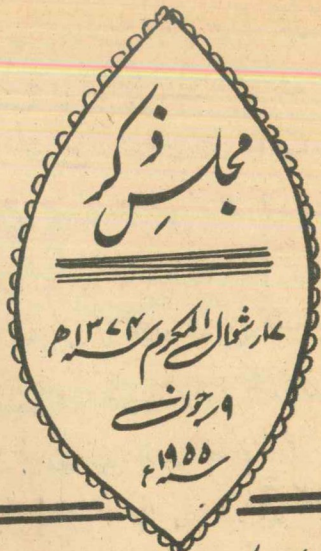 مجلسِ ذکر
۱۷ر شوال المکرم ۱۳۷۴ھ
۹ر جون
۱۹۵۵ء